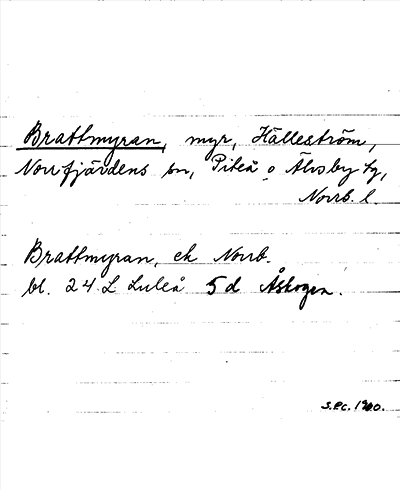 Brattmyran, myr, Hälleström,
Norrfjärdens sn, Piteå o Älvsby tg,
Norrb. l
Brattmyran, ek Norrb.
bl. 24 L Luleå 5 d Åskogen.